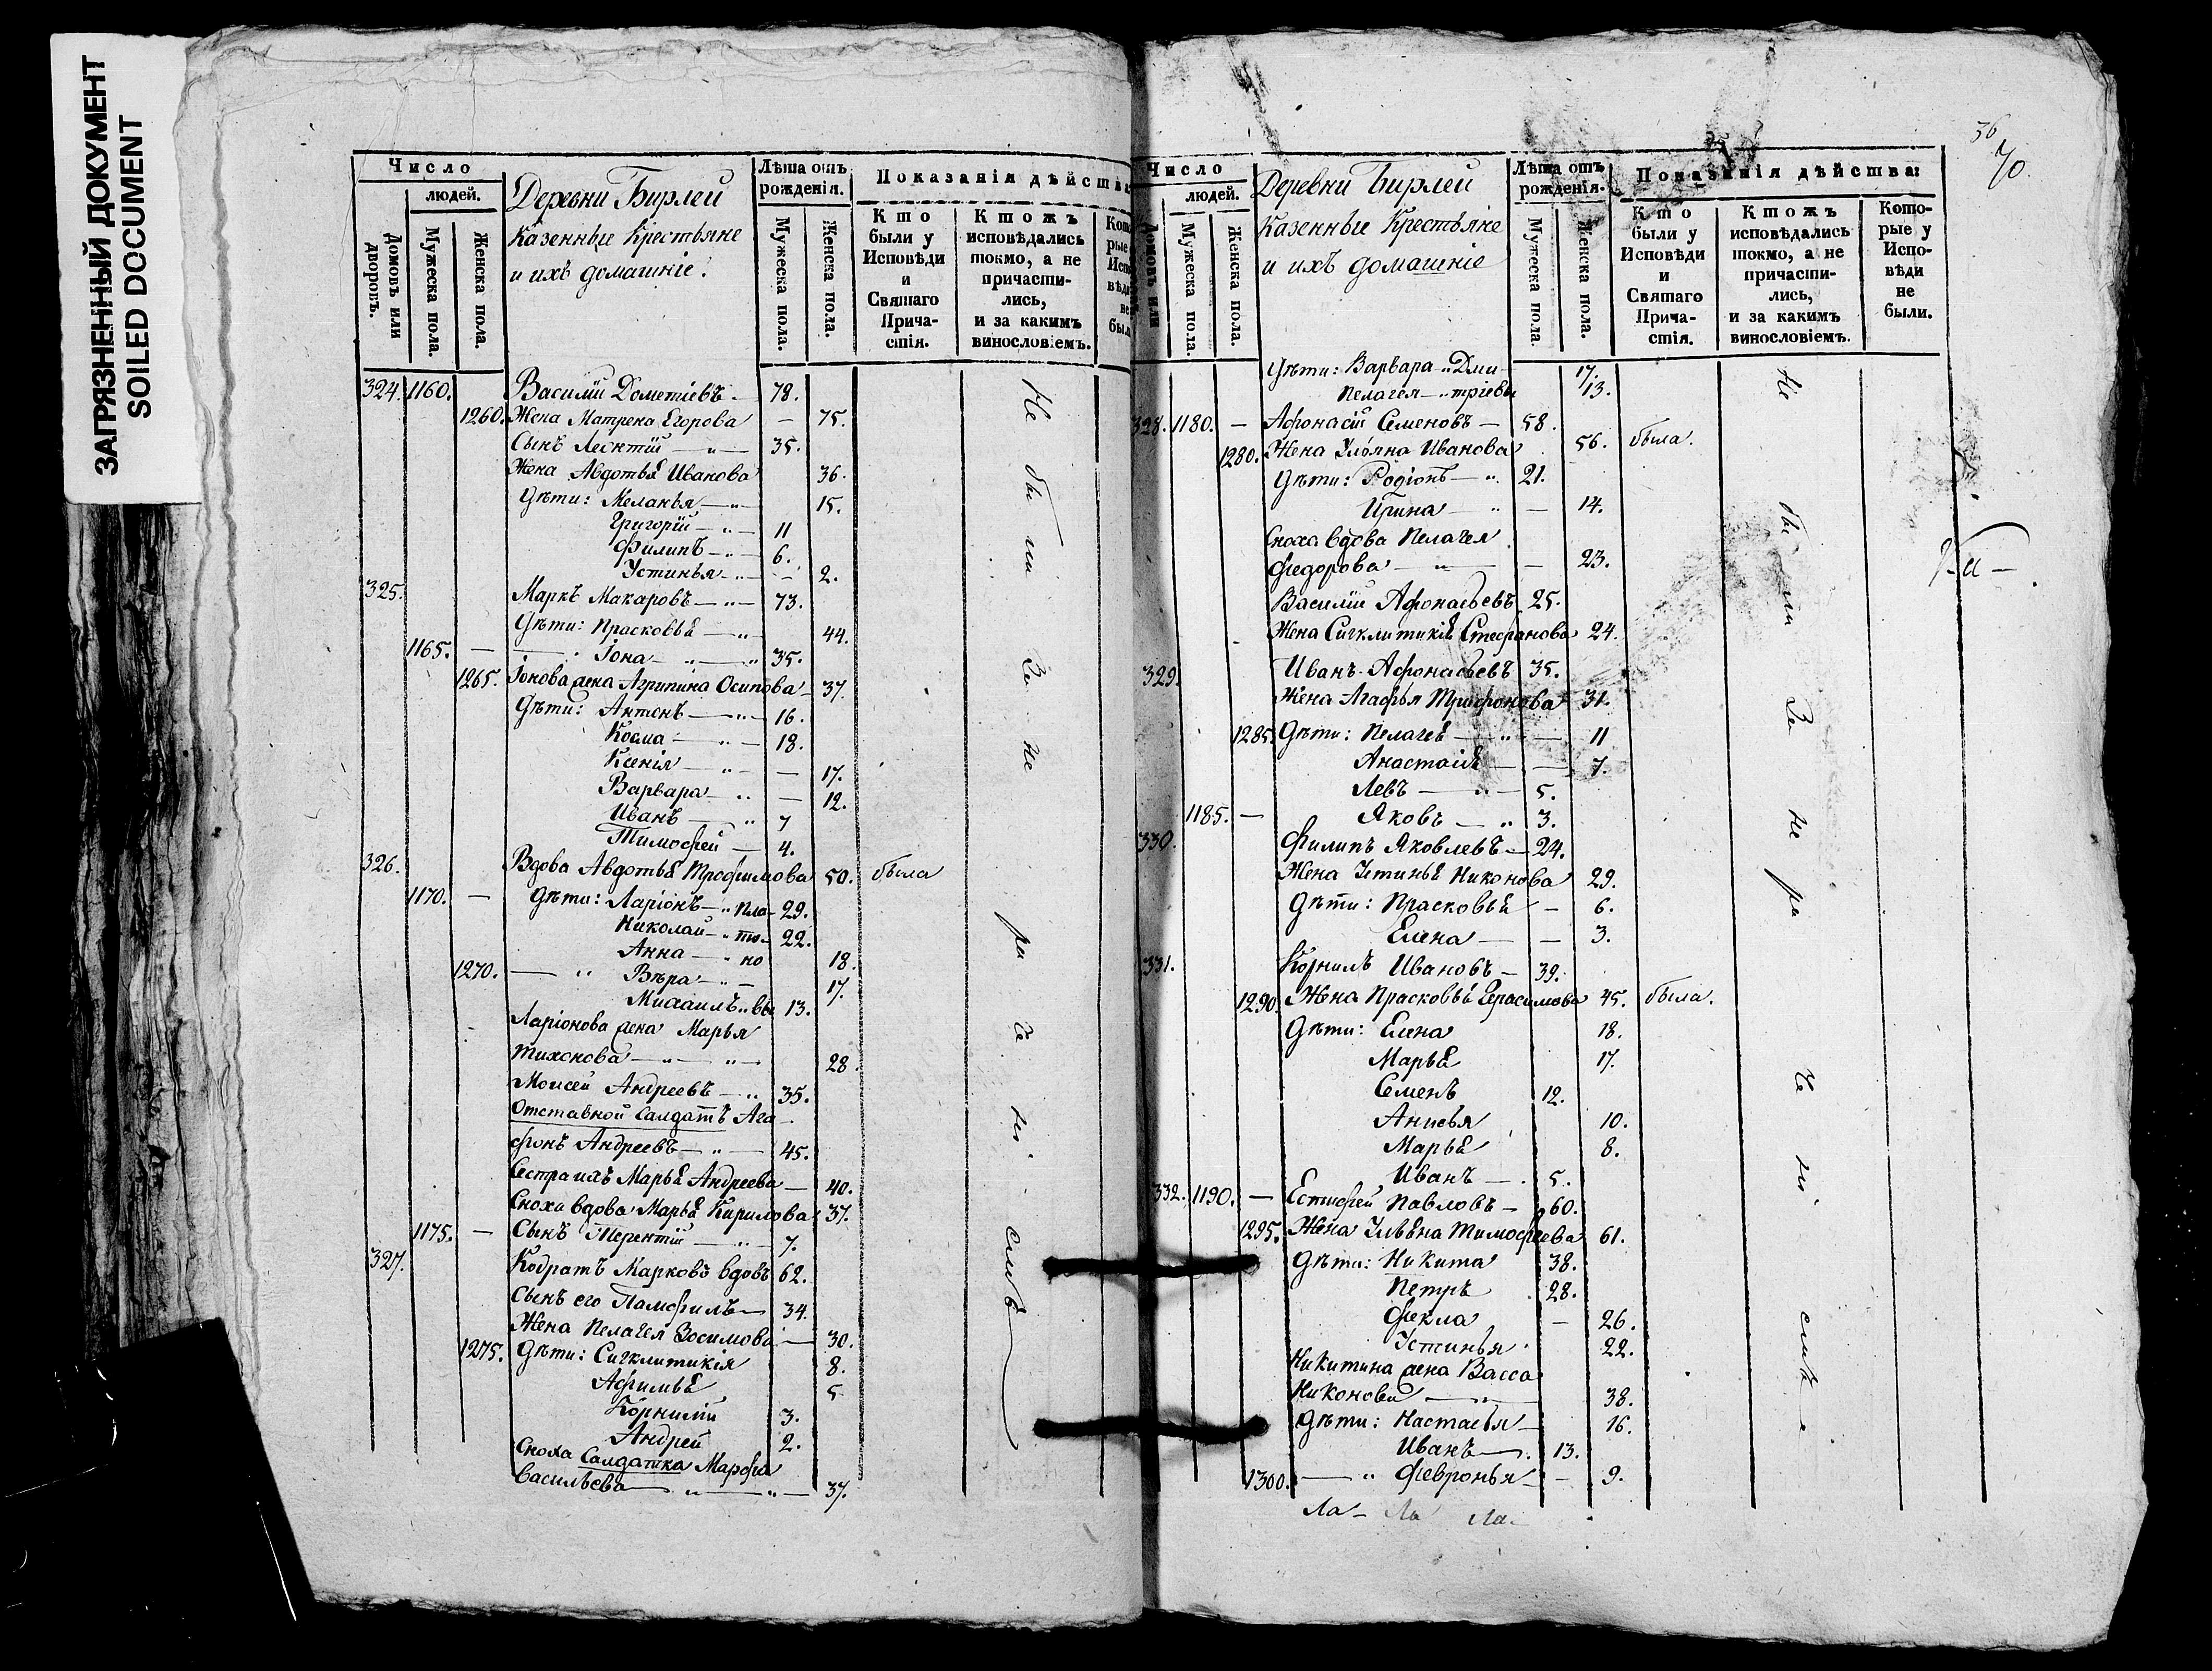 ЗАГРЯЗНЕННЫЙ ДОКУМЕНТ
SOILED DOCUMENT
Число
людей.
Домовъ или дворовъ.
Мужеска пола.
Женска пола.
Деревни Бирлей
Казенные Крестьяне
и ихъ домашніе:
Лѣта отъ рожденія.
Мужеска пола.
Женска пола.
Показанія дѣйства
Кто были у Исповѣди и Святаго Прича-стія.
Ктожъ исповѣдались токмо, а не причасти-лись, и за какимъ винословіемъ.
324. 1160. Василій Дометіевъ 78.
1260. Жена Матрена Егорова — 75.
Сынъ Леонтій — 35.
Жена Авдотья Иванова 36.
Дѣти: Меланья — 15.
Григорій — 11
Филипъ — 6.
Устинья — 2.
325. Маркъ Макаровъ — 73.
Дѣти: Прасковья — 44.
1165. — Іона — 35.
1265. Іонова жена Агрипина Осипова — 37.
Дѣти: Антонъ — 16.
Козма — 18.
Ксенія — 17.
Варвара — 12.
Иванъ — 7
Тимофей — 4.
326. Вдова Авдотья Трофимова 50. была
1170. — Дѣти: Ларіонъ — Пла- 29.
Николай — то- 22.
Анна — но 18.
1270. — Вѣра — 17.
Михаилъ вы 13.
Ларіонова жена Марья
Тихонова — 28
Моисей Андреевъ — 35.
Отставной Салдатъ Ага-
фонъ Андреевъ — 45.
Сестра ихъ Марья Андреева — 40.
Сноха вдова Марья Кирилова 37.
1175. — Сынъ Терентій — 7.
327. Кодратъ Марковъ вдовъ 62.
Сынъ его Памфилъ — 34.
Жена Пелагея Зосимова — 30.
1275. Дѣти: Сигклитикія 8.
Афимья 5
Корнилій 3.
Андрей 2.
Сноха Салдатка Марфа
Васильева — 37.
Не бы ли За не ра че ні емъ
36
70.
Число
людей.
Домовъ или
Мужеска пола.
Женска пола.
Деревни Бирлей
Казенные Крестьяне
и ихъ домашніе
Лѣта отъ рожденія.
Мужеска пола.
Женска пола.
Показанія дѣйства:
Кто были у Исповѣди и Святаго Прича-стія.
Ктожъ исповѣдались токмо, а не причасти-лись, и за какимъ винословіемъ.
Кото-рые у Испо-вѣди не были.
Дѣти: Варвара Дми- 17.
Пелагея — тріевы 13.
328. 1180. — Афонасій Семеновъ — 58.
1280. Жена Ульяна Иванова 56. была.
Дѣти: Родіонъ — 21.
Ирина — 14.
Сноха вдова Пелагея
Федорова — 23.
Василій Афонасьевъ 25.
Жена Сигклитикія Стефанова 24.
329. Иванъ Афонасьевъ 35.
Жена Агафья Трифонова 31.
1285. Дѣти: Пелагея — 11
Анастасія — 7.
Левъ — 5.
1185. — Яковъ — 3.
330. Филипъ Яковлевъ — 24.
Жена Устинья Никонова 29.
Дѣти: Прасковья — 6.
Елена — 3.
331. Корнилъ Ивановъ — 39.
1290. Жена Прасковья Герасимова 45. была.
Дѣти: Елена 18.
Марья 17.
Семенъ 12.
Анисья 10.
Марья 8.
Иванъ — 5.
332. 1190. — Естифей Павловъ — 60.
1295. Жена Ульяна Тимофеева 61.
Дѣти: Никита 38.
Петръ 28.
Фекла — 26.
Устинья 22.
Никитина жена Васса
Никонова — 38.
Дѣти: Настасья — 16.
Иванъ — 13.
1300. — Февронья — 9.
Не бы ли За не ра че ні емъ
Ла- Ла Ла-